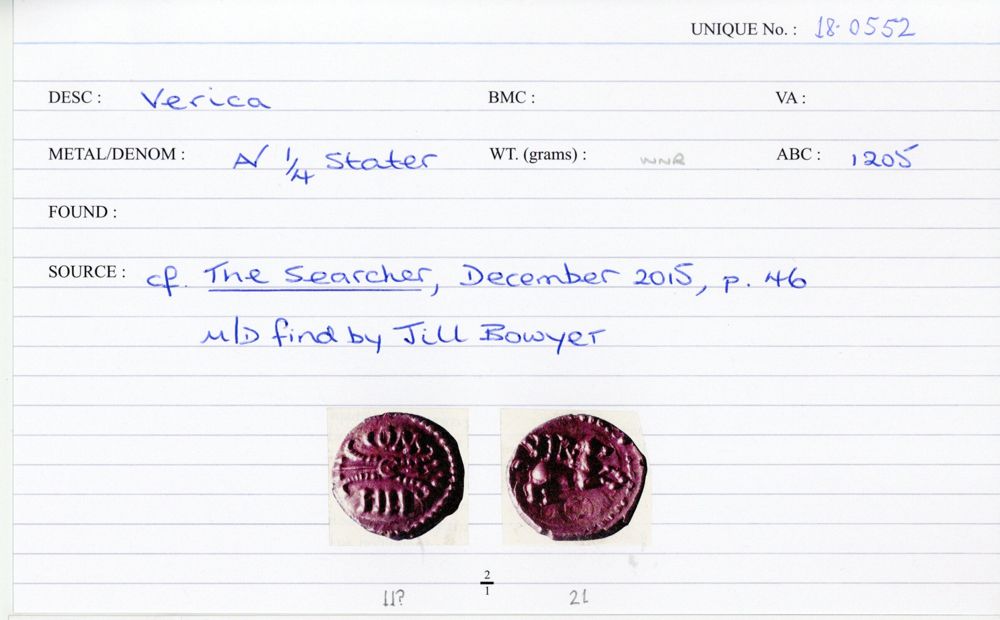 UNIQUE No. : 18-0552
DESC : Verica BMC : VA :
METAL/DENOM : A/ 1/4 Stater WT. (grams) : WNR ABC : 1205
FOUND :
SOURCE : cf. The Searcher, December 2015, p. 46
M/D find by Jill Bowyer
VIR
2
1
11? 21